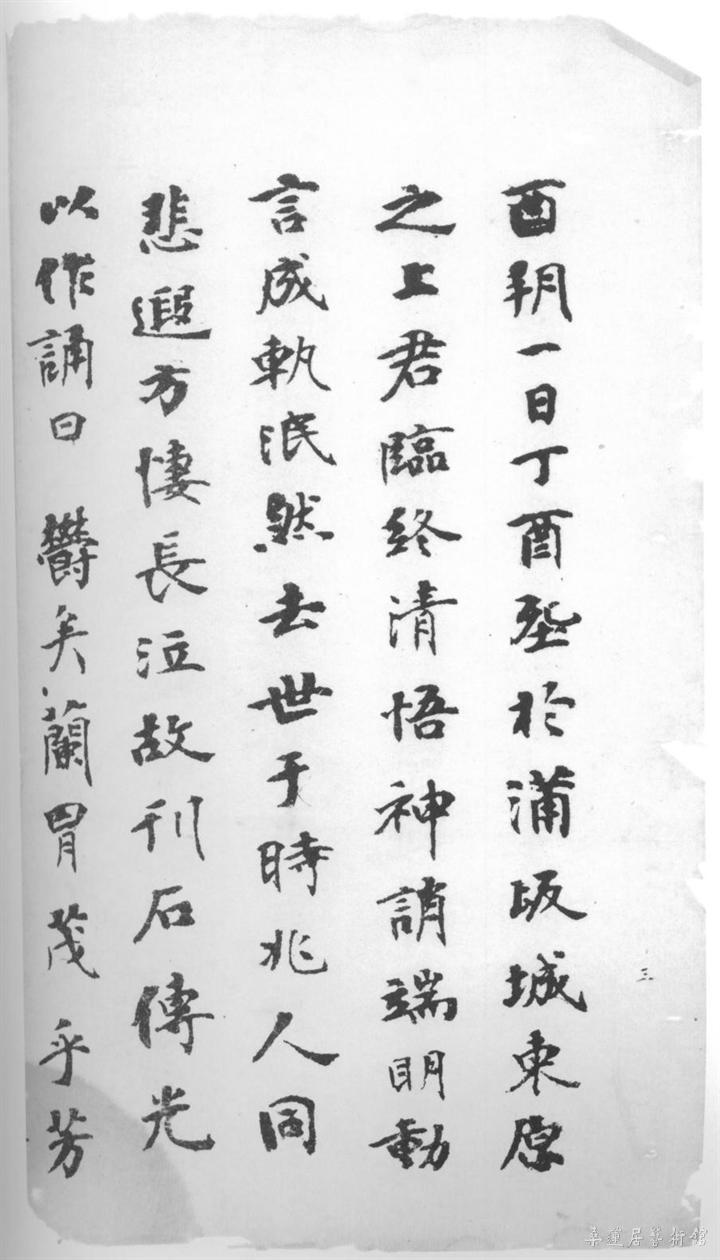 酉朔一日丁酉塟於蒲坂城東原
之上君臨終清悟神誚端明動
言成軌泯然去世于時兆人同
悲遐方悽長泣故刊石傳光
以作誦曰 鬱矣蘭胄茂乎芳
三
桑蓮居藝術館